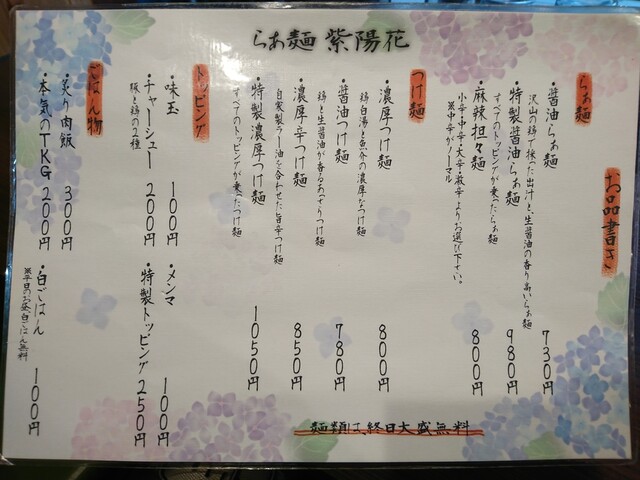 らぁ麺 紫陽花
お品書き
らぁ麺
・醤油らぁ麺 730円
沢山の鶏で採った出汁と、生醤油の香り高いらぁ麺
・特製醤油らぁ麺 980円
すべてのトッピングが乗ったらぁ麺
・麻辣担々麺 800円
小辛・中辛・大辛・激辛よりお選び下さい。
※中辛がノーマル
つけ麺
・濃厚つけ麺 800円
鶏白湯と魚介の濃厚なつけ麺
・醤油つけ麺 780円
鶏と生醤油が香るあっさりつけ麺
・濃厚辛つけ麺 850円
自家製ラー油を合わせた旨辛つけ麺
・特製濃厚つけ麺 1050円
すべてのトッピングが乗ったつけ麺
トッピング
・味玉 100円
・メンマ 100円
・チャーシュー 200円
豚と鶏の2種
・特製トッピング 250円
ごはん物
・炙り肉飯 300円
・本気のTKG 200円
・白ごはん 100円
※平日のお昼白ごはん無料
麺類は、終日大盛無料